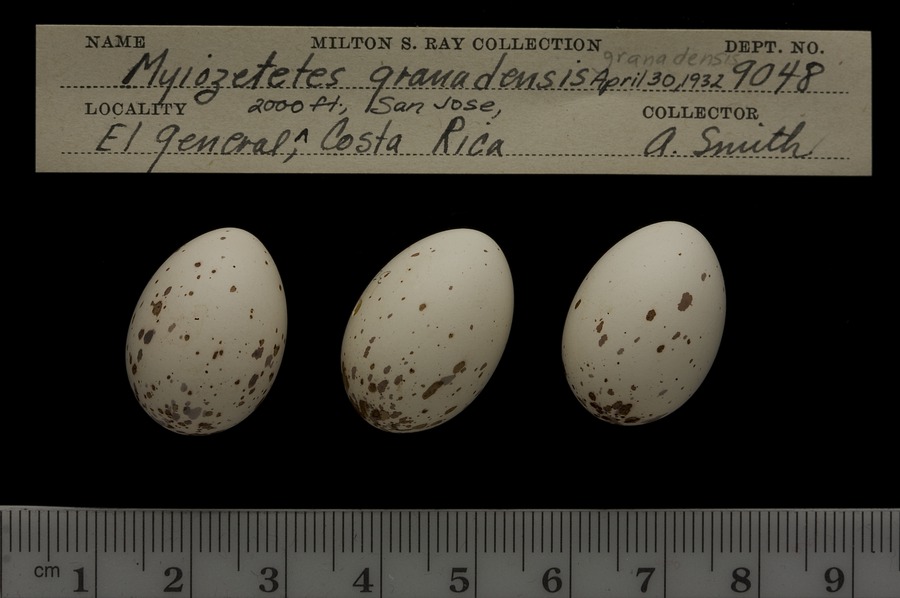 NAME MILTON S. RAY COLLECTION DEPT. NO.
granadensis
Myiozetetes granadensis April 30, 1932 9048
LOCALITY 2000 ft., San Jose, COLLECTOR
El General, ^ Costa Rica A. Smith
cm 1 2 3 4 5 6 7 8 9